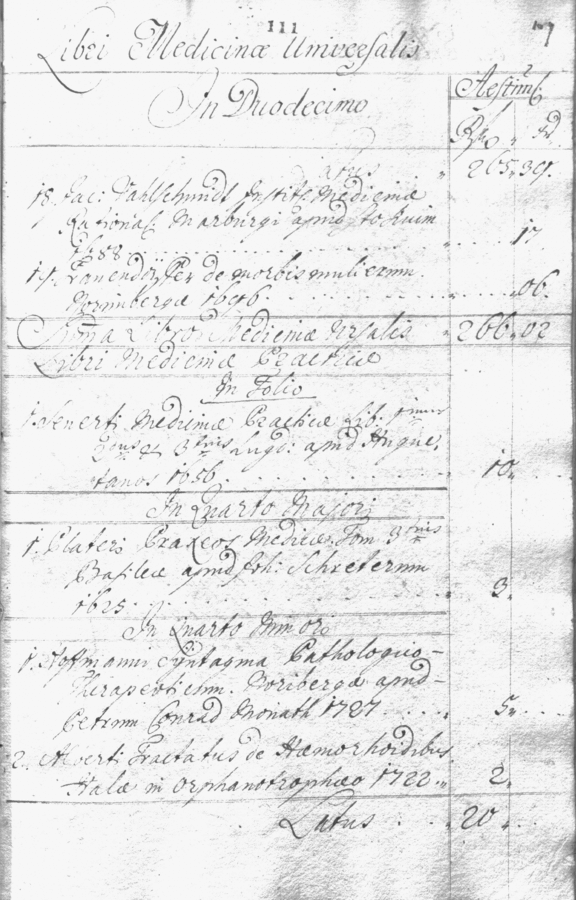 111
Libri Medicinæ Universalis
In Duodecimo
Latus 265. 39.
18. Jac: Valschmidt Instit. Medicinæ
Rational. Marburgi apud
1688 17
19. de morbis mulierum
Norimbergæ 1696 06.
Libror. Medicinæ 266. 02
Libri Medicinæ Practicæ
In Folio
1. Senerti Medicinæ Practicæ Lib.
& 3tius Lugd: apud Hugue
tanos 1656. 10.
In Quarto Majori
1. Plateri Praxeos Medicæ Tom 3
Basileæ apud Joh: Schreterum
1625. 3.
In Quarto Minori
1. Hoffmanni Syntagma Pathologico-
Therapeuticum. Noribergæ apud
Petrum Conrad Monath 1727. 5.
2. Alberti Tractatus de Hæmorhoidibus
Halæ in Orphanotrophæo 1722. 2.
Latus 20.